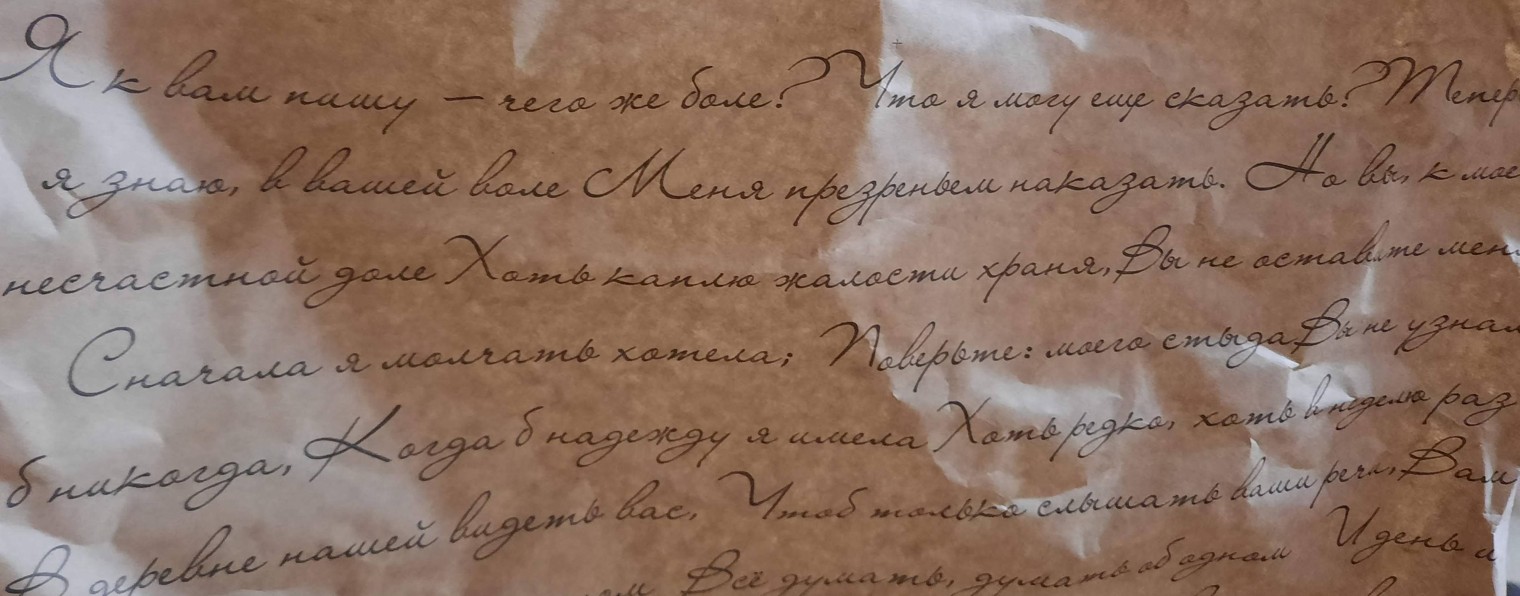 Я к вам пишу – чего же боле? Что я могу еще сказать? Тепер
я знаю, в вашей воле Меня презреньем наказать. Но вы, к мое
несчастной доле Хоть каплю жалости храня, Вы не оставите мен
Сначала я молчать хотела; Поверьте: моего стыда Вы не узнал
б никогда, Когда б надежду я имела Хоть редко, хоть в неделю раз
В деревне нашей видеть вас, Чтоб только слышать ваши речи, Вам
Всё думать, думать об одном И день и